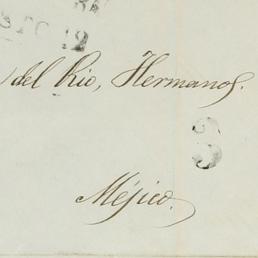 del Rio, Hermanos.
3
Méjico.